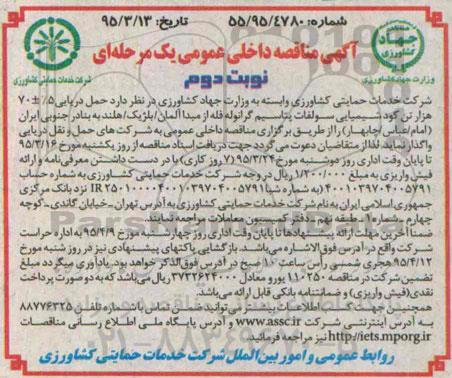 شماره: ۵۵/۹۵/۴۷۸۰
تاریخ: ۹۵/۳/۱۳
جهاد
کشاورزی
وزارت جهاد کشاورزی
آگهی مناقصه داخلی عمومی یک مرحله‌ای
نوبت دوم
شرکت خدمات حمایتی کشاورزی
شرکت خدمات حمایتی کشاورزی وابسته به وزارت جهاد کشاورزی در نظر دارد حمل دریایی ۵٪±۷۰
هزار تن کود شیمیایی سولفات پتاسیم گرانوله فله از مبدا آلمان/بلژیک/هلند به بنادر جنوبی ایران
(امام/عباس/چابهار) را از طریق برگزاری مناقصه داخلی عمومی به شرکت های حمل و نقل دریایی
واگذار نماید. لذا از متقاضیان دعوت می گردد جهت دریافت اسناد مناقصه از روز یکشنبه مورخ ۹۵/۳/۱۶
تا پایان وقت اداری روز دوشنبه مورخ ۹۵/۳/۲۴ (۷ روز کاری) با در دست داشتن معرفی‌نامه و ارائه
فیش واریزی به مبلغ ۱/۲۰۰/۰۰۰ ریال در وجه شرکت خدمات حمایتی کشاورزی به شماره حساب
۴۰۰۱۰۳۹۷۰۴۰۰۵۷۹۱ (به شماره شبا IR ۲۵۰۱۰۰۰۰۴۰۰۱۰۳۹۷۰۴۰۰۵۷۹۱) نزد بانک مرکزی
جمهوری اسلامی ایران به نام شرکت خدمات حمایتی کشاورزی به آدرس تهران-خیابان گاندی-کوچه
چهارم -شماره ۱- طبقه - دفتر کمیسیون معاملات مراجعه نمایند.
ضمنا آخرین مهلت ارائه پیشنهادها تا پایان وقت اداری روز چهارشنبه مورخ ۹۵/۴/۹ به اداره حراست
شرکت واقع در آدرس فوق‌الاشاره می‌باشد. بازگشایی پاکتهای پیشنهادی نیز در روز شنبه مورخ
۹۵/۴/۱۲ هجری شمسی راس ساعت ۱۰ صبح در آدرس فوق‌الذکر خواهد بود. یادآوری میگردد مبلغ
تضمین شرکت در مناقصه ۱۱۰۲۵۰ یورو معادل ۳۷۳۲۶۲۴۰۰۰ ریال می‌باشد که به دو صورت پرداخت
نقدی (فیش واریزی) و ضمانتنامه بانکی قابل ارائه می‌باشد.
همچنین جهت کسب اطلاعات بیشتر می توانید ضمن تماس با شماره تلفن ۸۸۷۷۶۳۲۵
به آدرس اینترنتی شرکت www.assc.ir و آدرس پایگاه ملی اطلاع رسانی مناقصات
http://iets.mporg.ir نیز مراجعه فرمائید.
روابط عمومی و امور بین الملل شرکت خدمات حمایتی کشاورزی